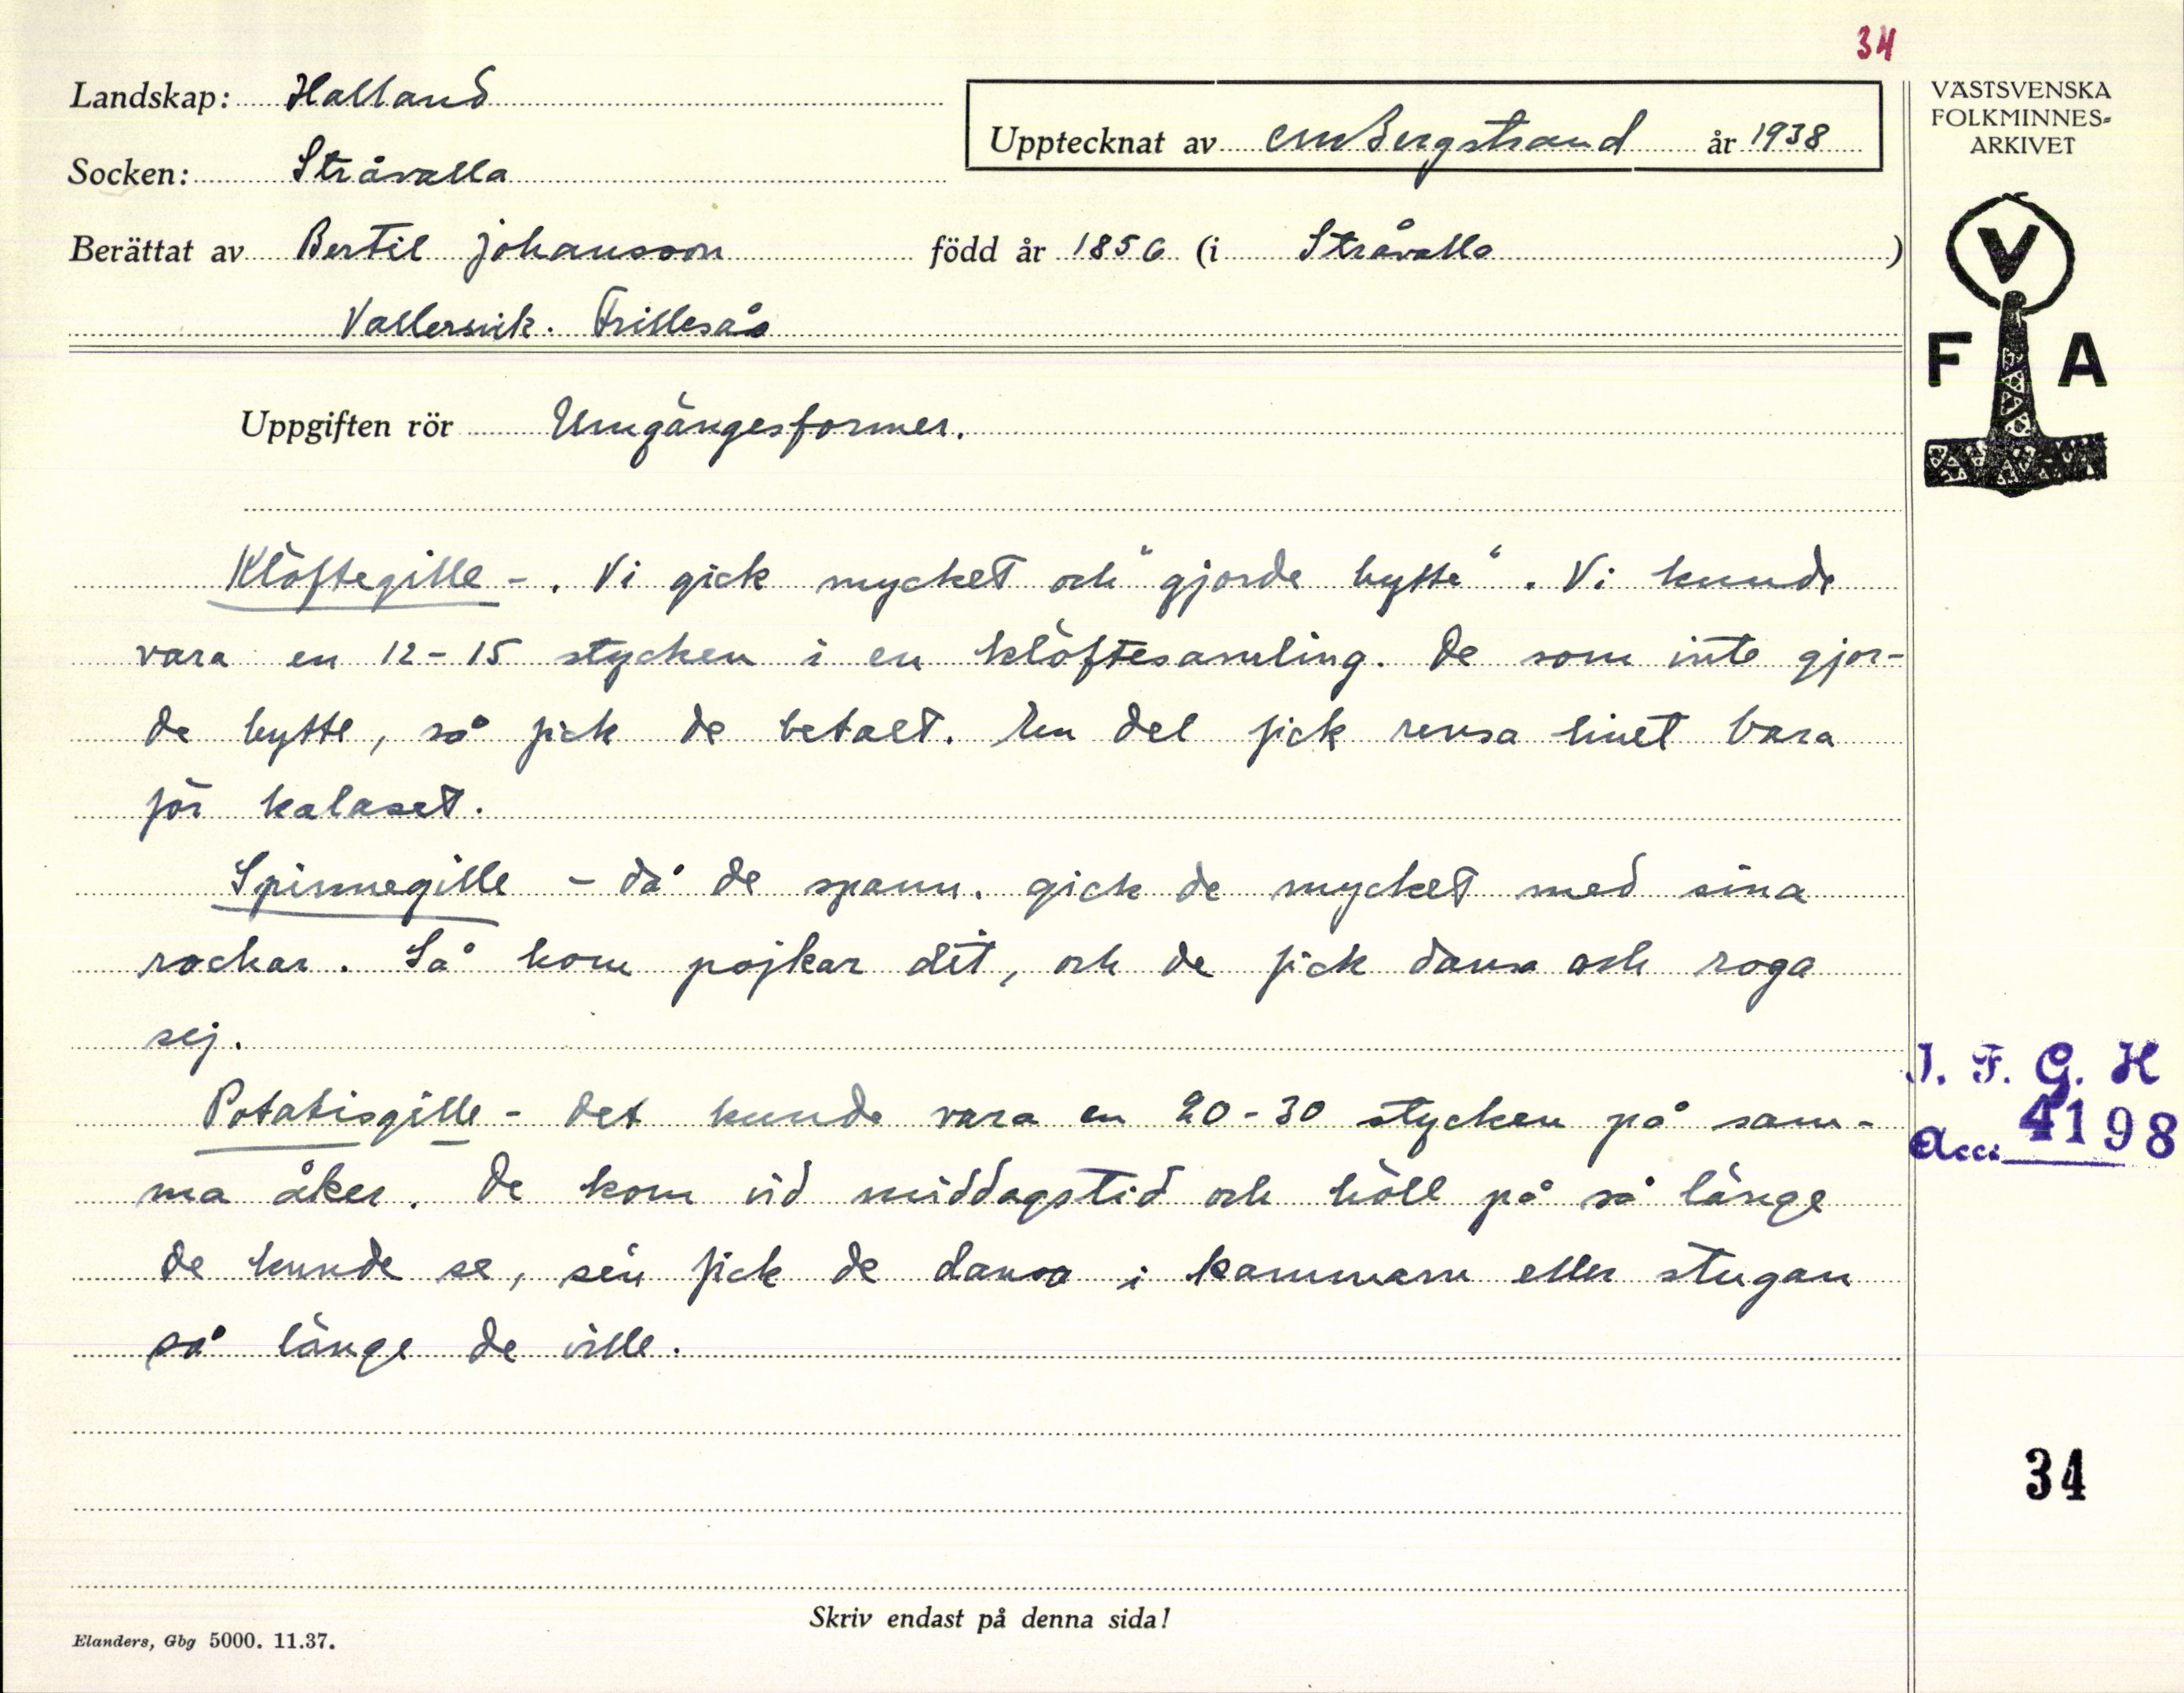 34
Landskap: Halland
Upptecknat av CMBergstrand år 1938
VÄSTSVENSKA
FOLKMINNES-
ARKIVET
Socken: Stråvalla
Berättat av Bertil Johansson född år 1856 (i Stråvalla )
Vallersvik. Frillesås
V
F A
Uppgiften rör Umgängesformer.
Klöftegille - . Vi gick mycket och "gjorde bytte". Vi kunde
vara en 12-15 stycken i en klöftesamling. De som inte gjor-
de bytte, så fick de betalt. En del fick rensa linet bara
för kalaset.
Spinnegille - då de spann. gick de mycket med sina
rockar. Så kom pojkar dit, och de fick dansa och roga
sej.
Potatisgille - det kunde vara en 20-30 stycken på sam-
ma åker. De kom vid middagstid och höll på så länge
de kunde se, sen fick de dansa i kammarn eller stugan
så länge de ville.
I. F. G. H
Acc. 4198
34
Skriv endast på denna sida!
Elanders, Gbg 5000. 11.37.